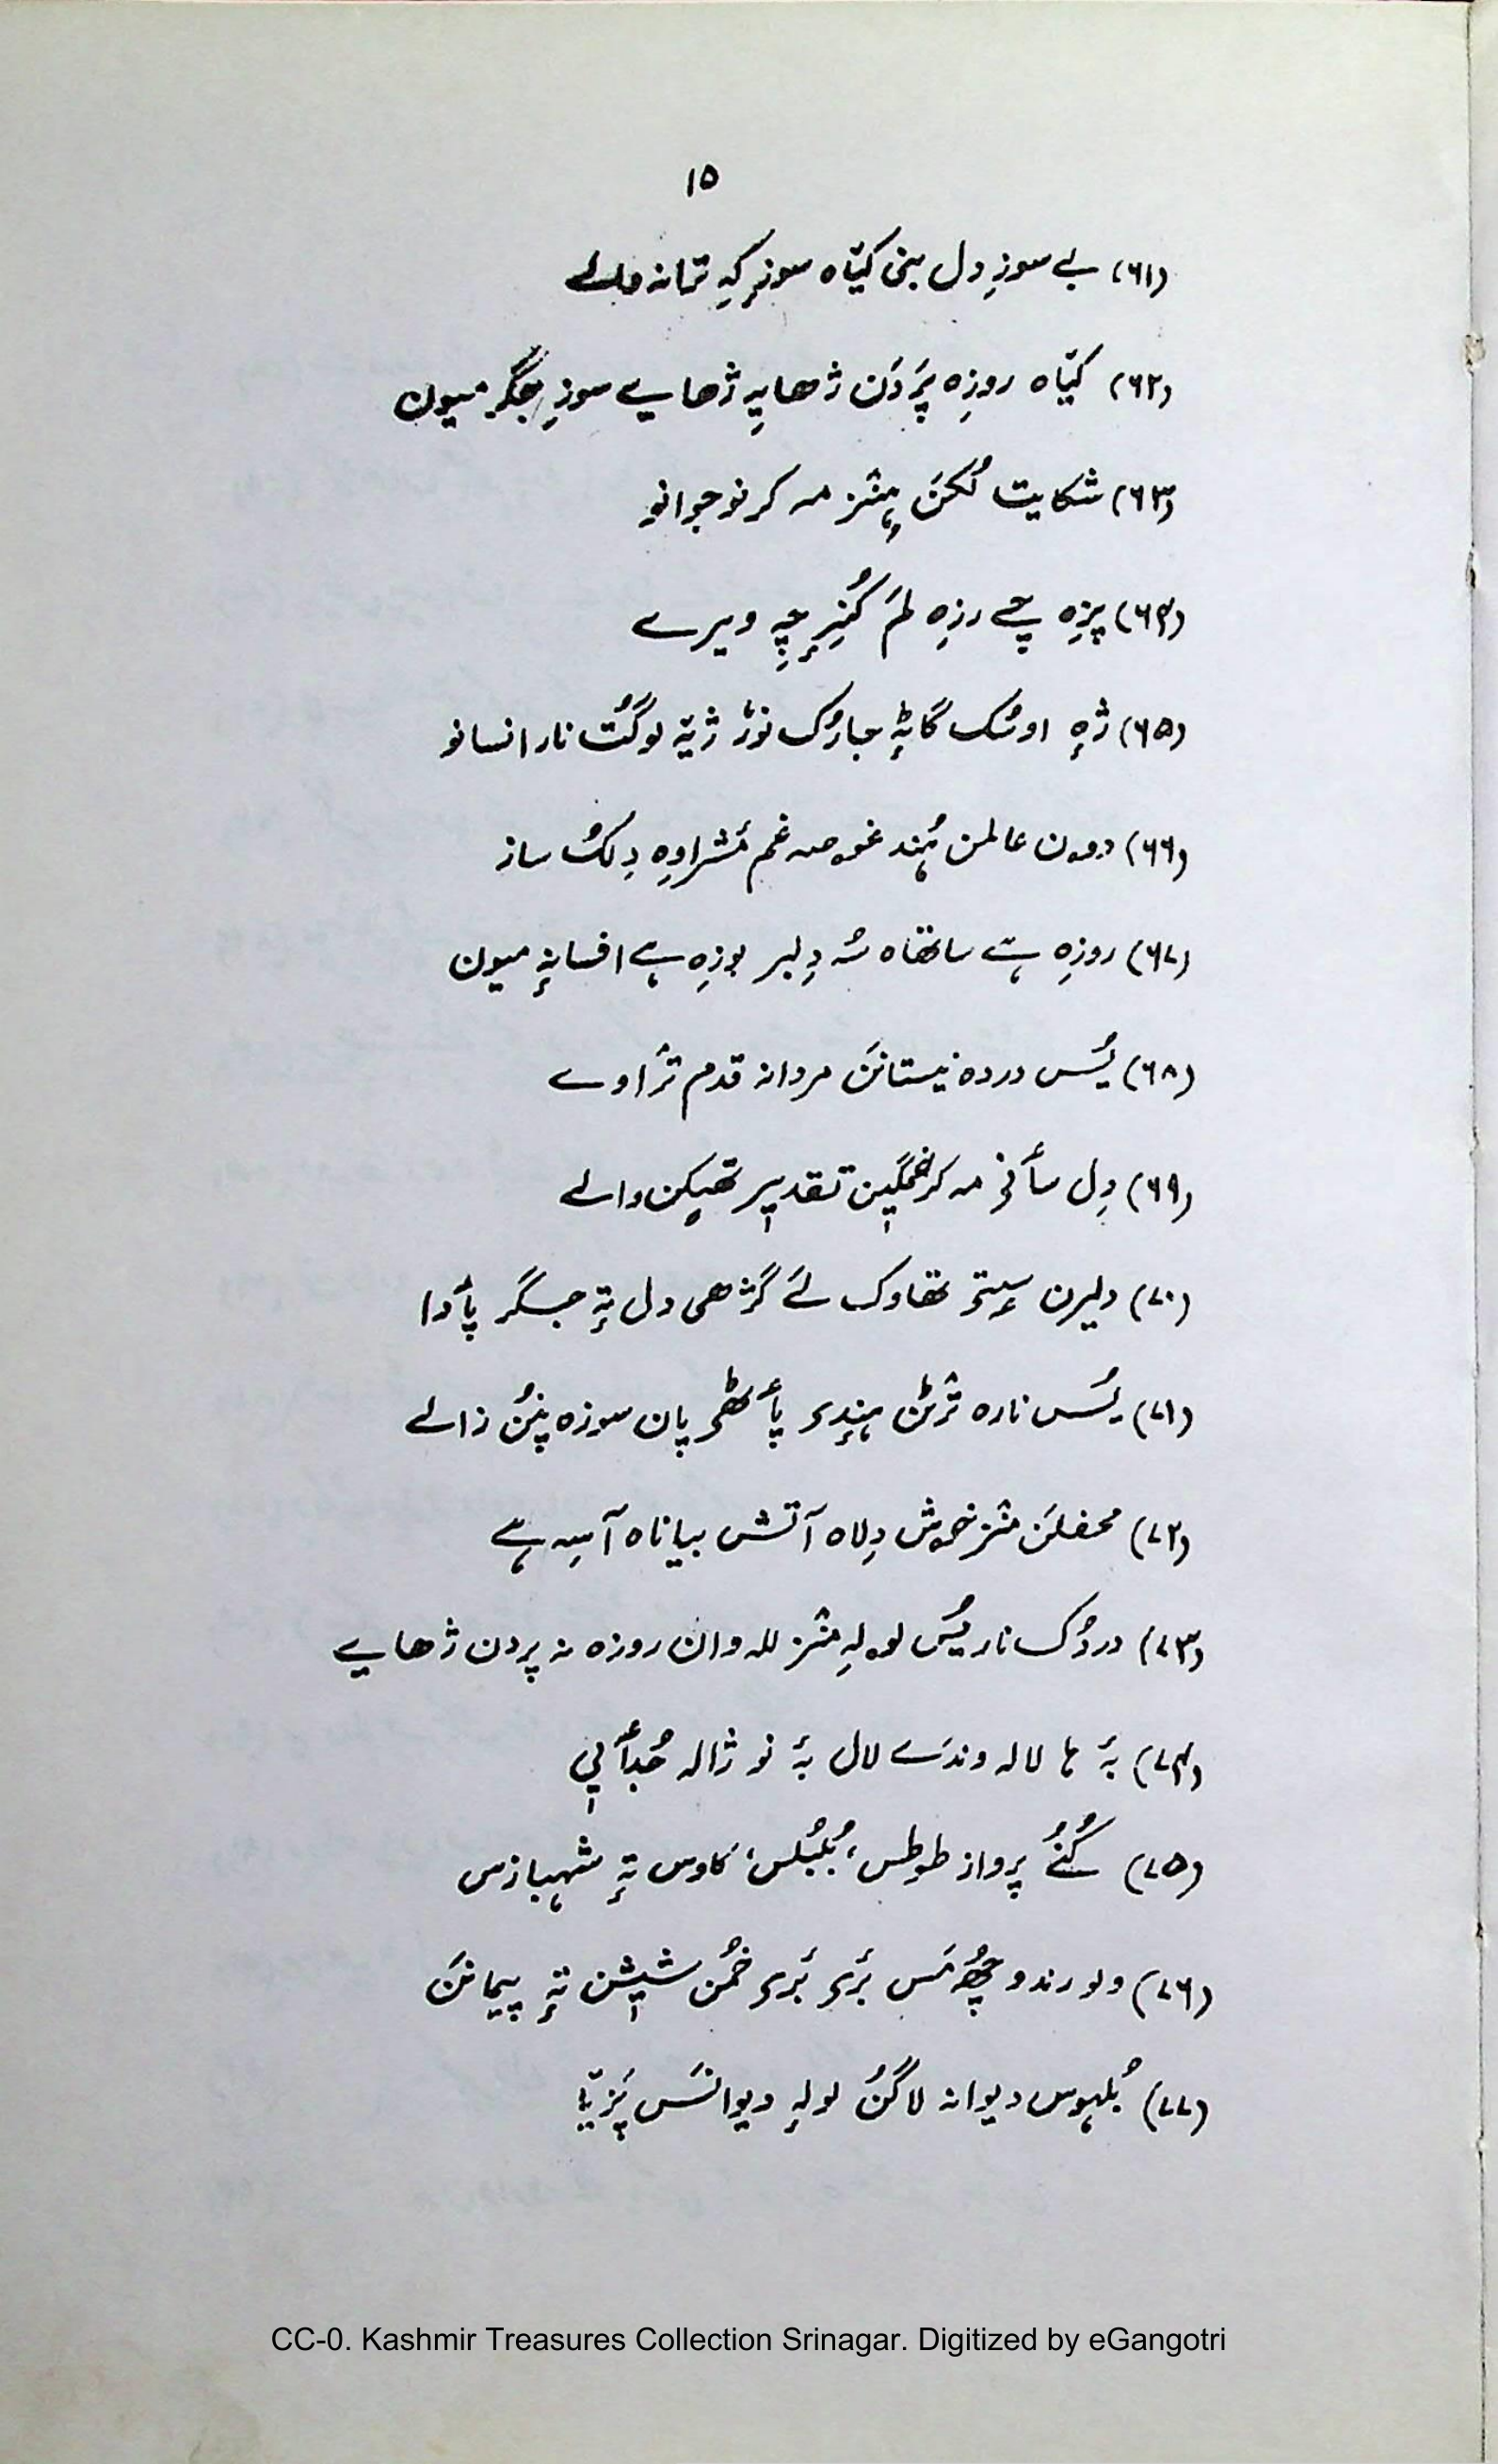 ۱۵
(۶۱) بے سوزِ دل بنی کیّاہ سوزِ کہِ ترانہ والے
(۶۲) کیّاہ روزِہ پَردَن ژھایہِ ژھایے سوزِ جگر میون
(۶۳) شکایت لُکَن ہٕنٛز مہ کر نوجوانو
(۶۴) پزِہ چے رزِہ لمَ کُنِرٕچہِ ویرے
(۶۵) ژٕہ اوسُک گاٹہٕ جارُک نوٗر ژیتہِ لوگُت نار انسانو
(۶۶) دوون عالمن ہُند غوصہ غم مٔشراوِہ دِلُک ساز
(۶۷) روزِہ ہے ساتھاہ سُہ دِلبر بوزِہ ہے افسانہٕ میون
(۶۸) یُس دردہ نیستانَن مردانہ قدم ترٛاوے
(۶۹) دِل سأنی مہ کر غمگیٖن تقدیٖر تھیکن والے
(۷۰) دلیرن سٍتۍ تھاوک لَے گَژھی دل تہٕ جگر پأدا
(۷۱) یُس نارہ ترٛٹن ہٕندۍ پأٹھۍ پان سوزہ پنُن زالے
(۷۲) محفلَن منٛز خوش دِلاہ آتش بیاناہ آسہِ ہے
(۷۳) دردُک نار یُس لولہِ منٛز للہ وان روزہ نہ پردن ژھایے
(۷۴) بہٕ ہا لالہ وندَے لال بہٕ نو ژالہ جُدأیی
(۷۵) کُنُے پرواز طوطس، بُلبُلس، کاوس تہٕ شہبازس
(۷۶) ولو رندو چھُ مَس بٔرۍ بٔرۍ خُمن شیٖشن تہٕ پیمانَن
(۷۷) بُلہوس دیوانہ لاگُن لولہِ دیوانَس پَزیّا
CC-0. Kashmir Treasures Collection Srinagar. Digitized by eGangotri